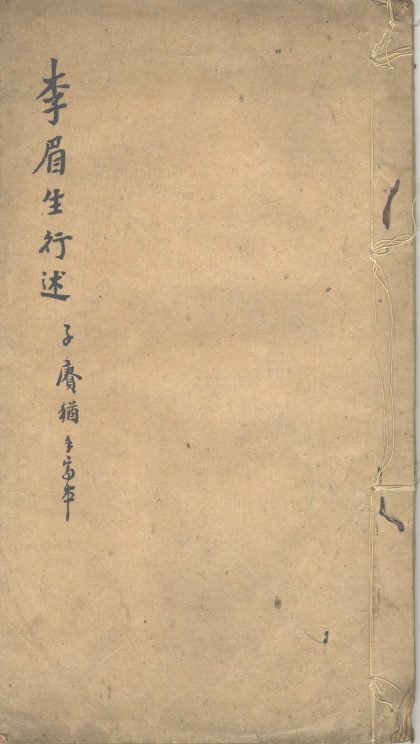 李眉生行述 子賡猶手寫本